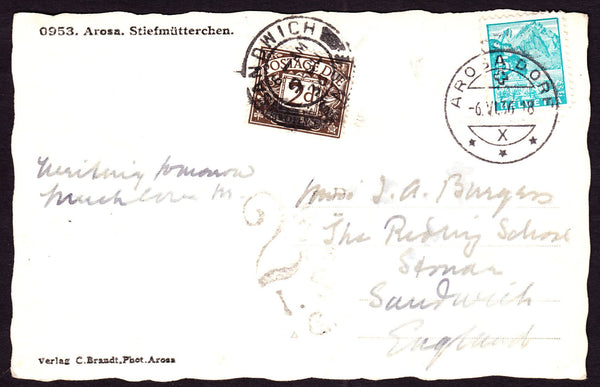 0953. Arosa. Stiefmütterchen.
SANDWICH
POSTAGE DUE
AROSA DORF
-6.VI.36-18
X
Writing tomorrow
Much love M.
Miss J. A. Burgess
The Redling School
Stonar
Sandwich
England
Verlag C. Brandt, Phot. Arosa